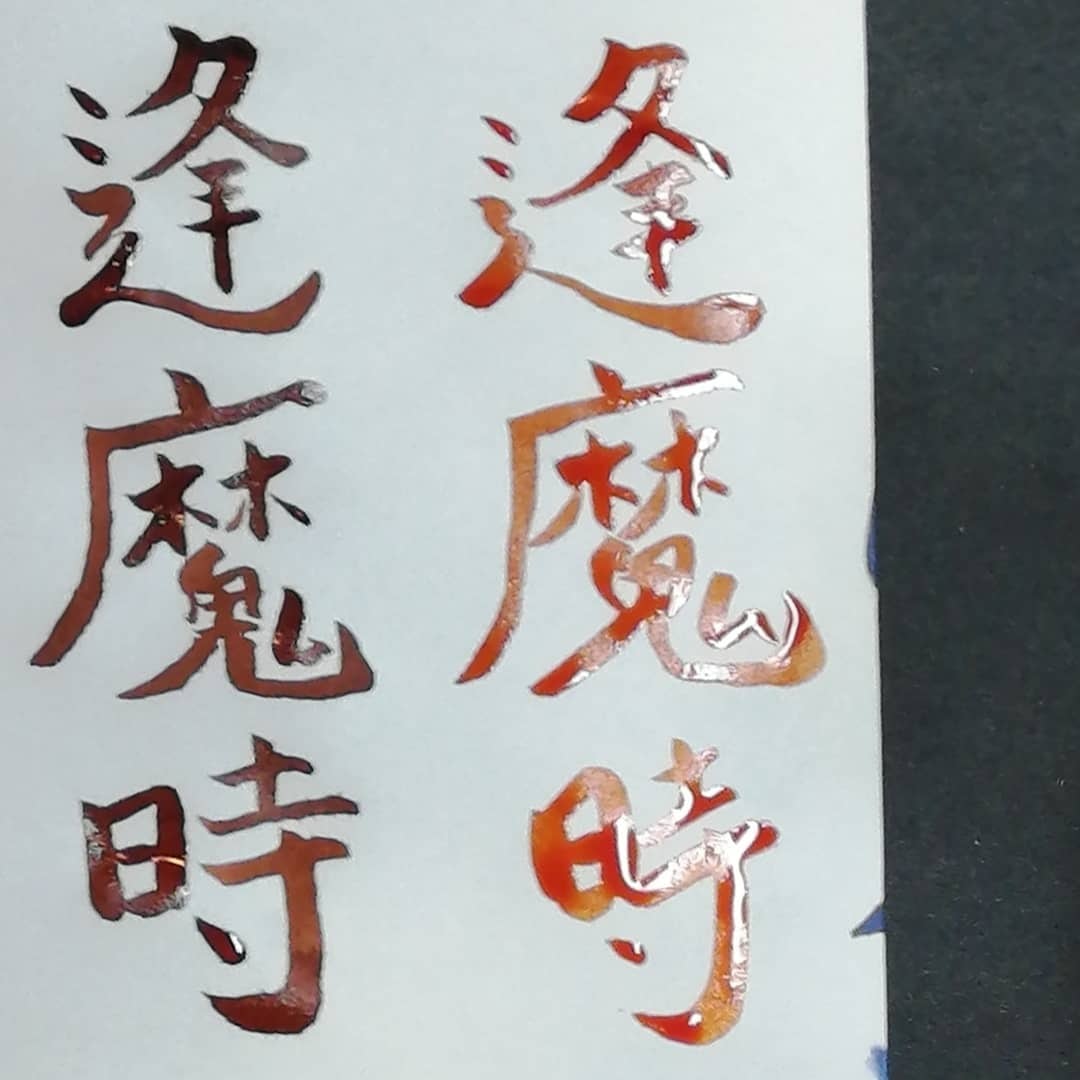 逢魔時
逢魔時